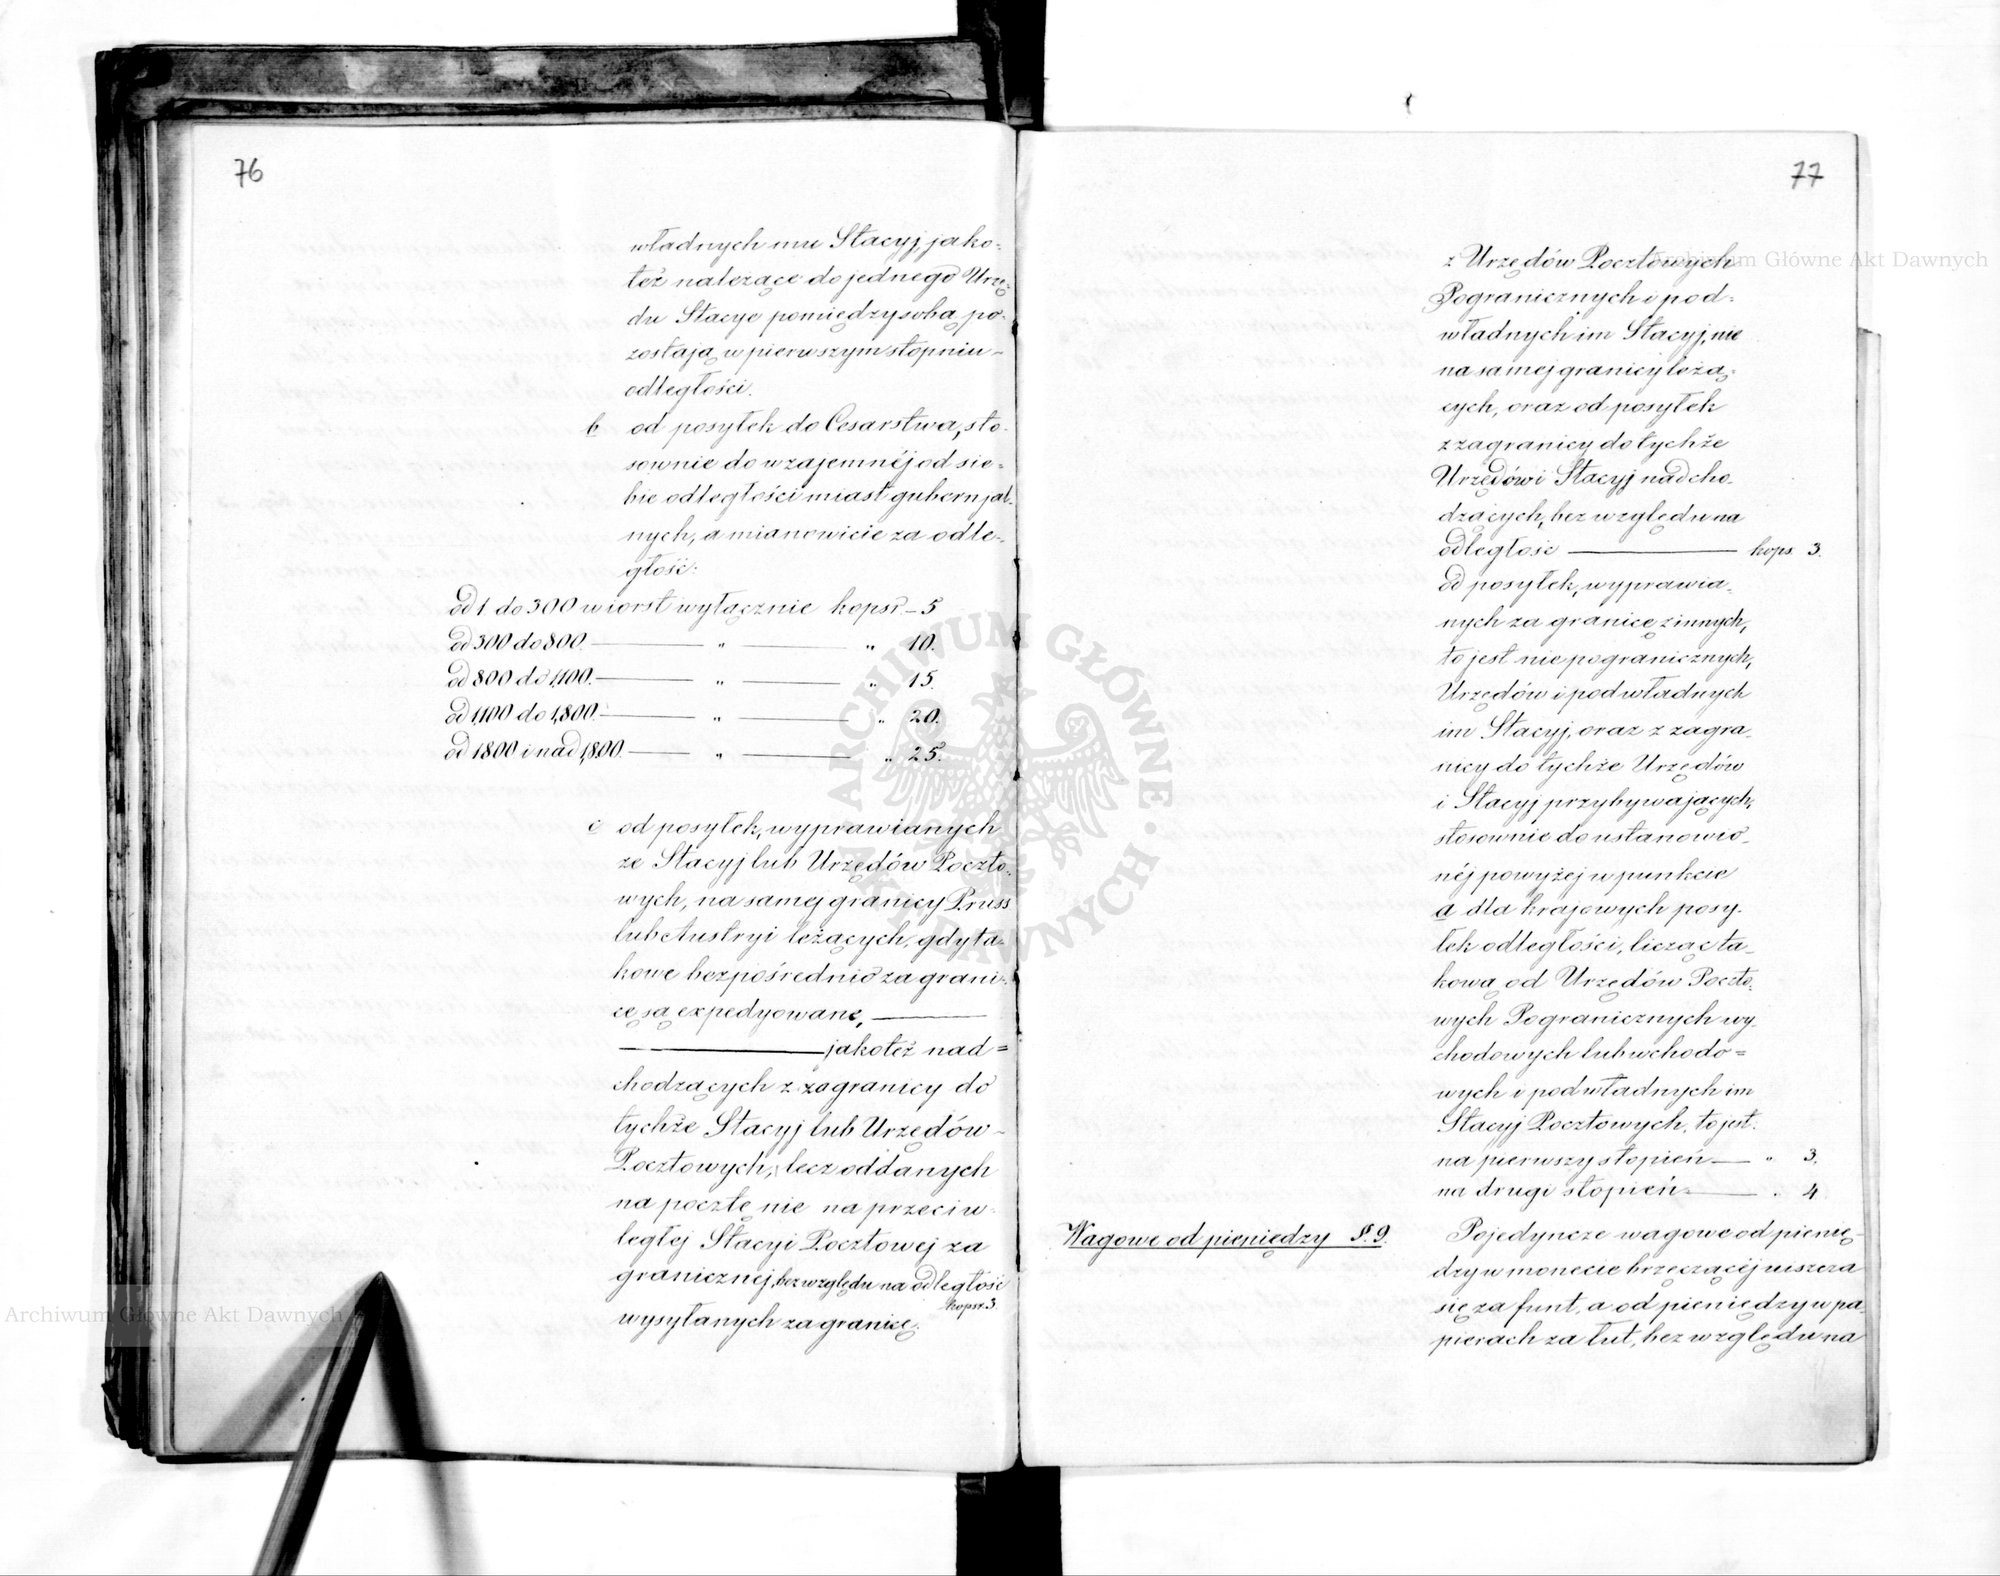 76
władnych mu Stacyj, jako=
też należące do jednego Urzę=
du Stacye pomiędzy sobą po=
zostają w pierwszym stopniu –
odległości.
b od posyłek do Cesarstwa, sto=
sownie do wzajemnéj od sie=
bie odległości miast gubernjal=
nych, a mianowicie za odle=
głość:
od 1 do 300 wiorst wyłącznie kopsr – 5
od 300 do 800 — „ — „ 10.
od 800 do 1,100. — „ — „ 15.
od 1,100 do 1,800. — „ — „ 20.
od 1800 i nad 1,800. — „ — „ 25.
c od posyłek, wyprawianych
ze Stacyj lub Urzędów Poczto=
wych, na samej granicy Pruss
lub Austryi leżących, gdy ta=
kowe bezpośrednio za grani=
cę są expedyowane, —
— jakoteż nad=
chodzących z zagranicy do
tychże Stacyj lub Urzędów –
Pocztowych, lecz oddanych
na pocztę nie na przeciw
ległej Stacyi Pocztowej za
granicznej, bez względu na odległość
kopsr. 3.
wysyłanych za granicę.
77
z Urzędów Pocztowych
Pogranicznych i pod=
władnych im Stacyj, nie
na samej granicy leżą=
cych, oraz od posyłek
z zagranicy do tychże
Urzędów i Stacyj nadcho=
dzących, bez względu na
odległość — kops. 3.
od posyłek, wyprawia=
nych za granicę z innych,
to jest nie pogranicznych,
Urzędów i podwładnych
im Stacyj, oraz z zagra=
nicy do tychże Urzędów
i Stacyj przybywających,
stosownie do ustanowio=
néj powyżej w punkcie
a dla krajowych posy=
łek odległości, licząc ta=
kową od Urzędów Poczto=
wych Pogranicznych wy=
chodowych lub wchodo=
wych i podwładnych im
Stacyj Pocztowych, to jest:
na pierwszy stopień — „ 3.
na drugi stopień — „ 4
Wagowe od pieniędzy §. 9.
Pojedyncze wagowe od pienię=
dzy w monecie brzęczącéj uiszcza
się za funt, a od pieniędzy w pa=
pierach za łut, bez względu na
Archiwum Główne Akt Dawnych
Archiwum Główne Akt Dawnych
ARCHIWUM GŁÓWNE AKT DAWNYCH